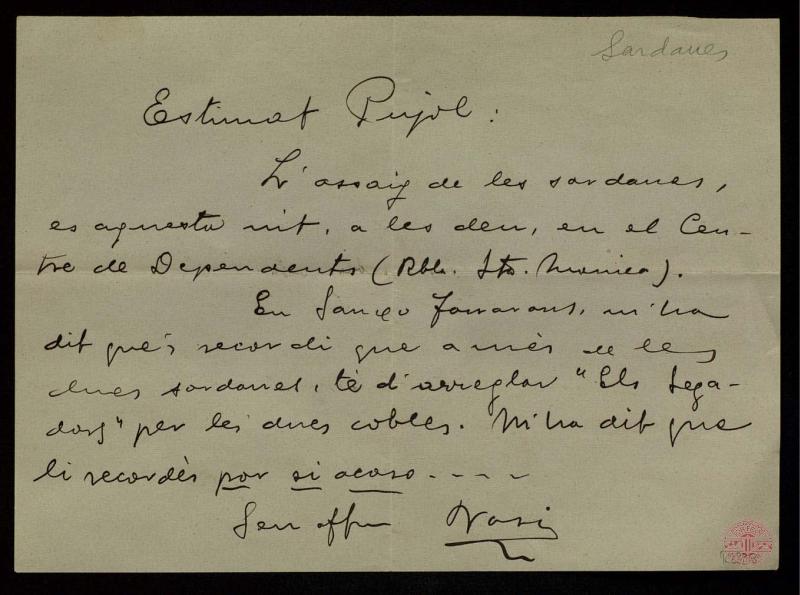 Sardanes
Estimat Pujol:
L'assaig de les sardanes,
es aquesta nit, a les deu, en el Cen-
tre de Dependents (Rbla. Sta. Monica).
En Sanxo Farrarons, m'ha
dit que's recordi que a més de les
dues sardanes, té d'arreglar "Els Sega-
dors" per les dues cobles. M'ha dit que
li recordés por si acaso - - - -
Seu affm